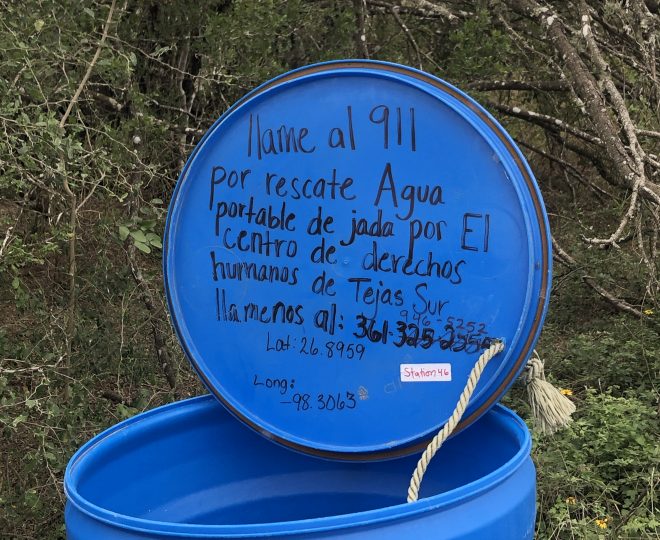 llame al 911
por rescate Agua
portable de jada por El
centro de derechos
humanos de Tejas Sur
946-5252
llamenos al: 361-325-
Lat: 26.8959
Station 46
Long:
-98.3063